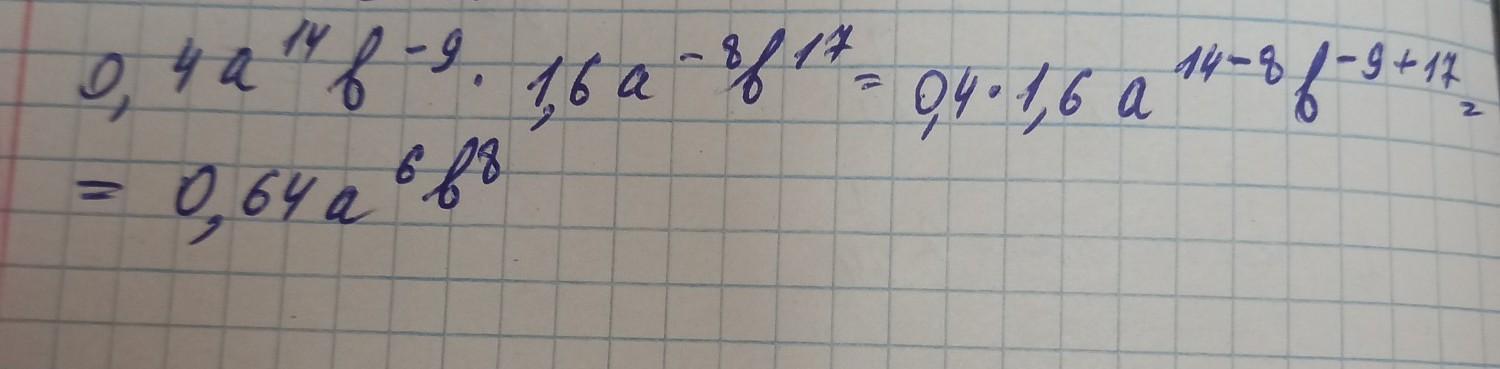 0,4a¹⁴b⁻⁹ · 1,6a⁻⁸b¹⁷ = 0,4 · 1,6 a¹⁴⁻⁸b⁻⁹⁺¹⁷ =
= 0,64a⁶b⁸